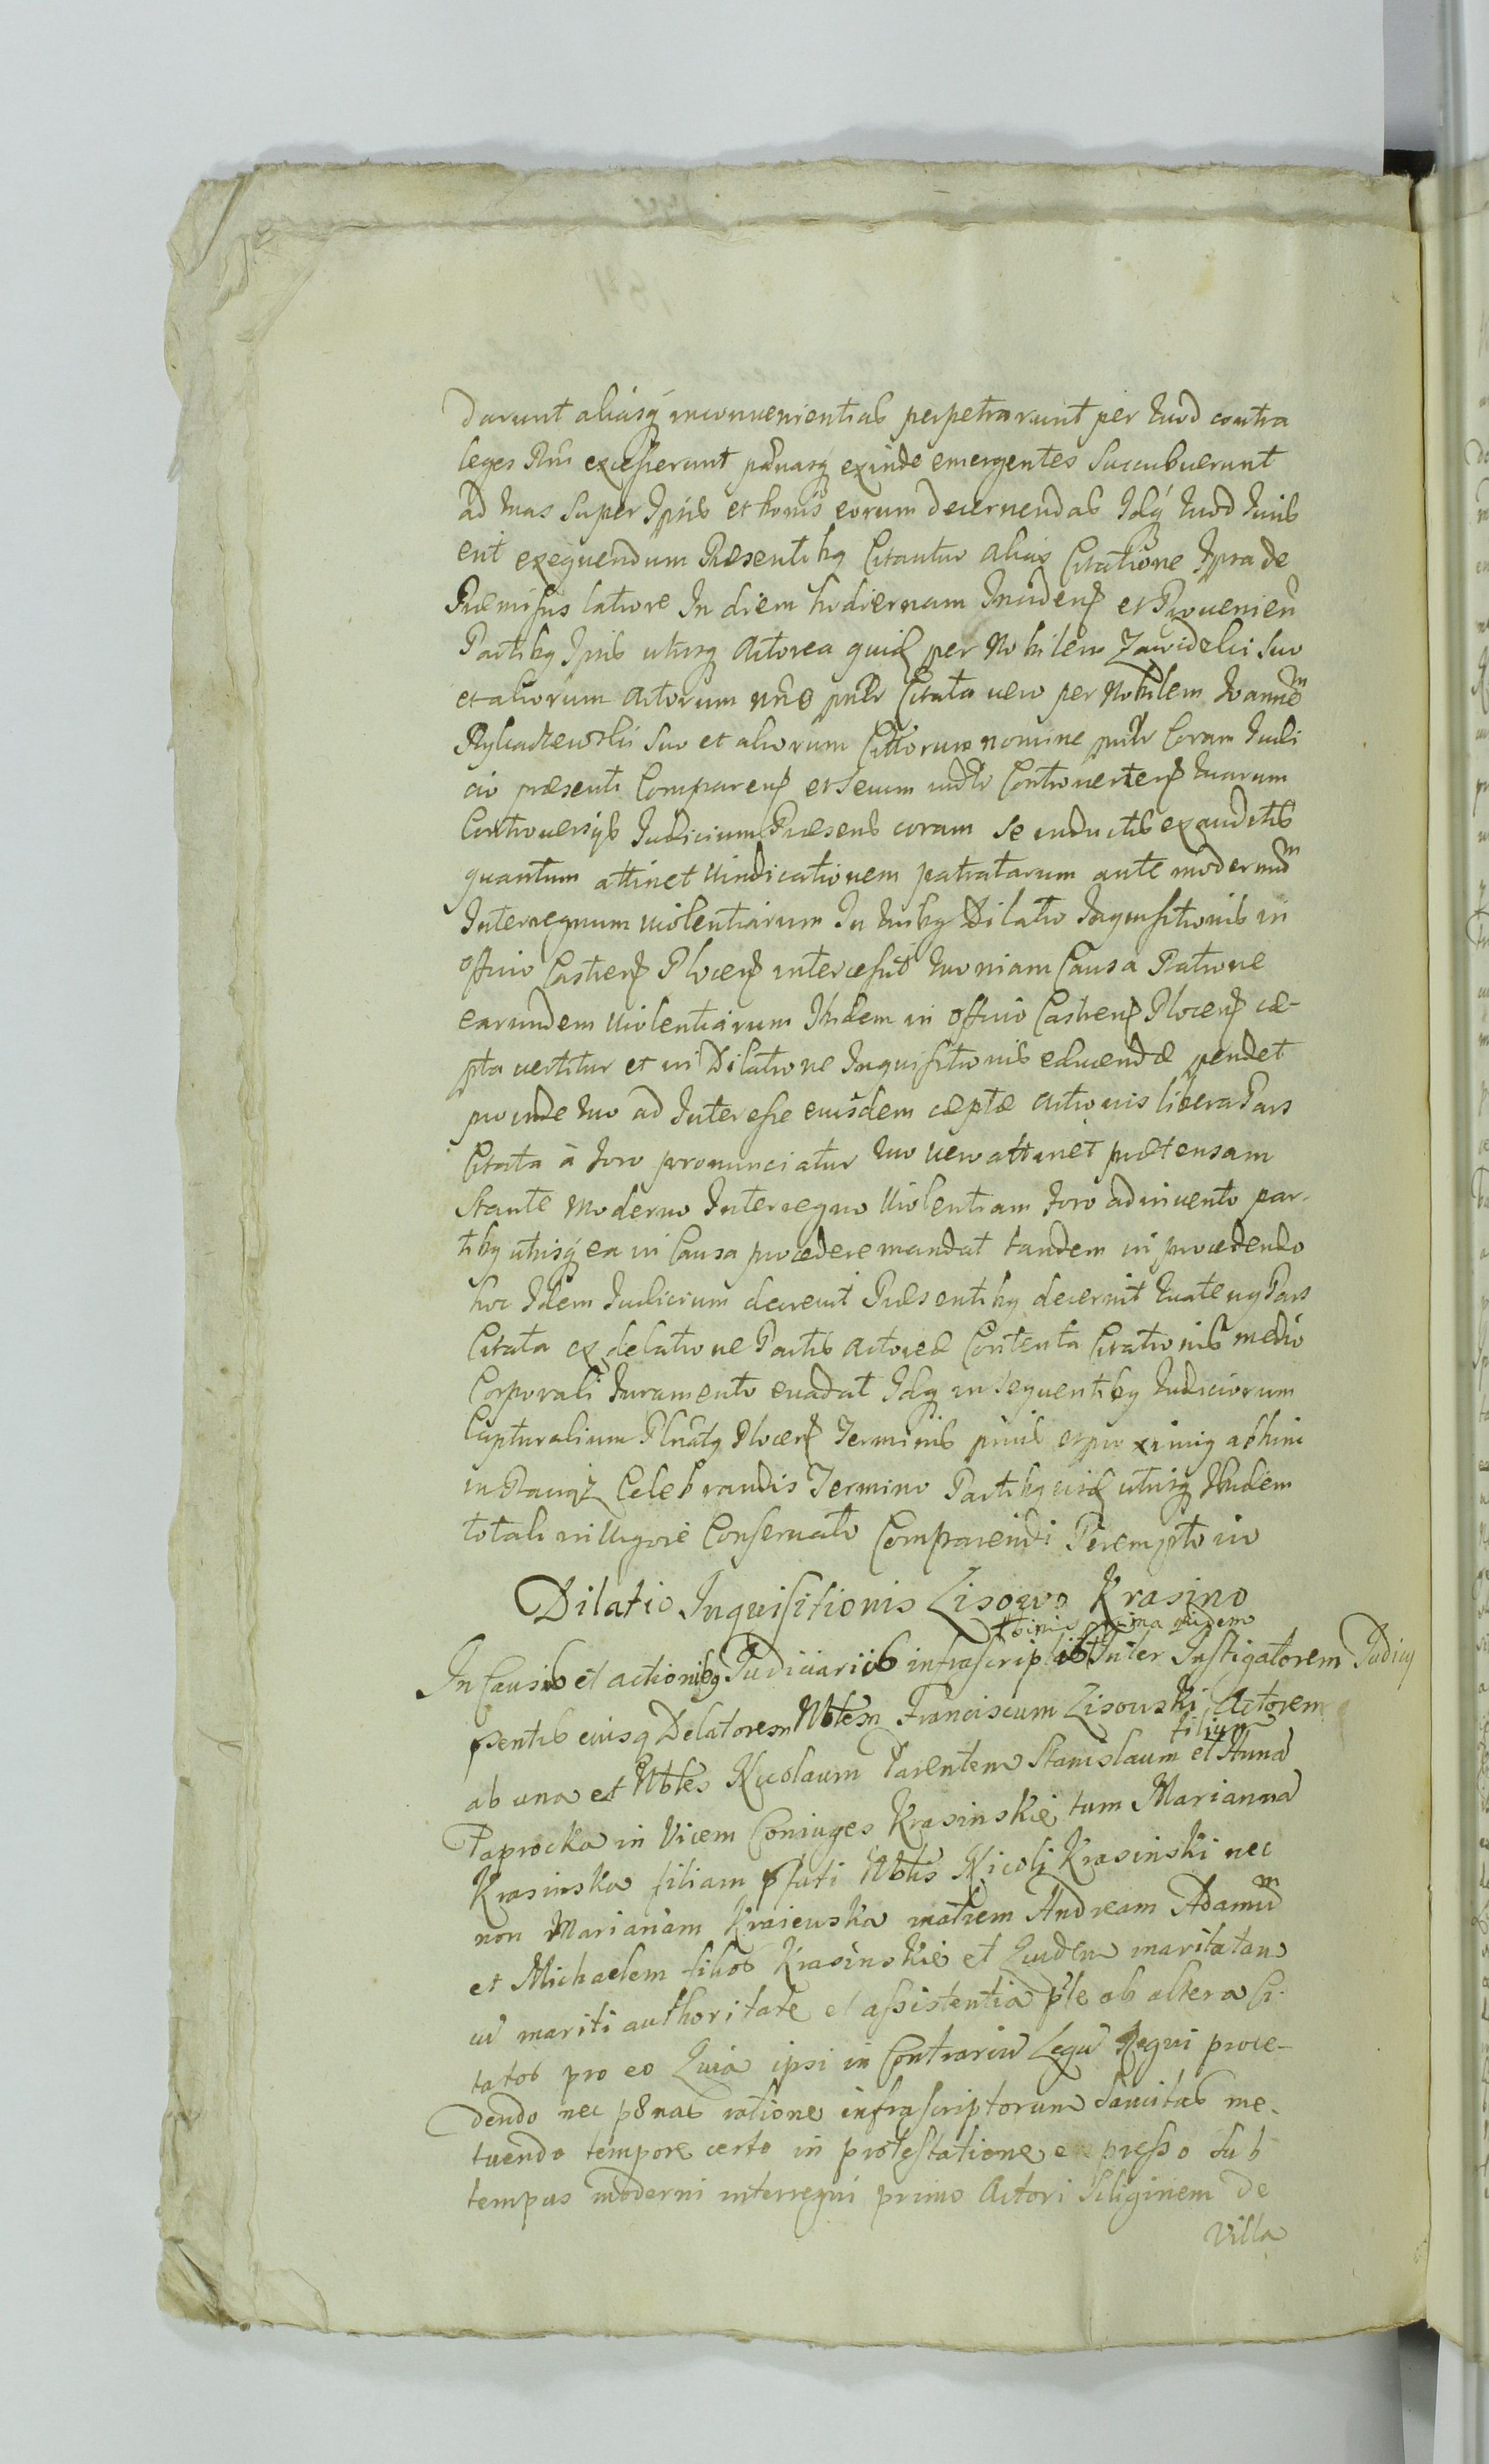 darunt aliasq inconvenientias perpetrarunt per quod contra
leges Rni excesserunt pænasq exinde emergentes succubuerunt
ad quas super Ipsis et bonis eorum decernendas Idq quod Iuris
erit exequendum Præsentibq Citantur alias Citatione Ipsa de
Præmissis latiore In diem hodiernam Inciden et Provenien
Partibq Ipsis utrisq Actorea quid per Nobilem Zawidzki suo
et aliorum Actorum nne Citata vero per Nobilem Ioannem
suo et aliorum Cittorum nomine Coram Iudi
cio præsenti Comparen et secum Controverten Quarum
Controversys Iudicium Præsens coram se inductis exauditis
quantum attinet Vindicationem patratarum ante modernum
Interregnum violentiarum In quibq Dilatio Inquisitionis in
officio Castren Plocen intercessit quoniam Causa Ratione
earundem Violentiarum Ibidem in Officio Castren Plocen cæ-
pta vertitur et in Dilatione Inquisitionis educendæ pendet
proinde quo ad Interesse eiusdem cæptæ actionis libera Pars
Citata à foro pronunciatur quo vero attinet prætensam
stante moderno Interregno Violentiam foro adinvento par-
tibq utrisq ea in Causa procedere mandat tandem in procedendo
hoc Idem Iudicium decrevit Præsentibq decernit Quatenq Pars
Citata ex delatione Partis Actoreæ Contenta Citationis medio
Corporali Iuramento evadat Idq in sequentibq Iudiciorum
Capturalium Plocen Terminis et proximiq abhinc
in Raciąz Celebrandis Termino Partibq eisd utrisq Ibidem
totali in Vigore Conservato Comparendi Peremptorio
Dilatio Inquisitionis Lisowo Krasino
binis prima quidem
In Causis et actionibq Iudiciariis infrascriptis Inter Instigatorem Iudicij
psentis eiusq Delatorem Nblem Franciscum Lisowski Actorem
filium
ab una et Nbles Nicolaum Parentem Stanislaum et Anna
Paprocka in Vicem Coniuges Krasinskie tum Marianna
Krasinska filiam pfati Nblis Nicoli Krasinski nec
non Marianam Kraiewska matrem Andream Adamum
et Michaelem filios Krasinskie et Quidem maritatam
in mariti authoritate et assistentia ple ab altera Ci-
tatos pro eo Quia ipsi in Contrariu Legu Regni proce-
dendo nec pænas ratione infrascriptorum sancitas me-
tuendo tempore certo in protestatione expresso sub
tempus moderni interregni primo Actori Siliginem de
Villa